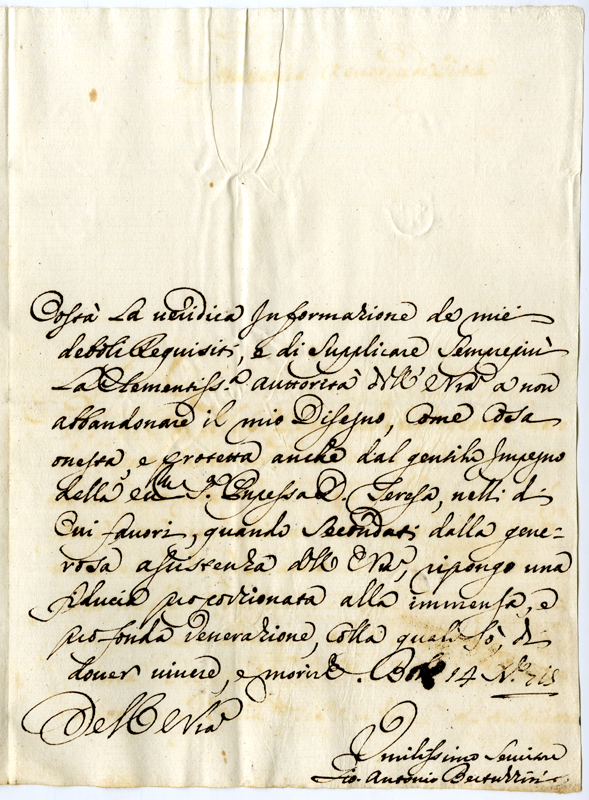 Costà La ueridica Informazione de miei
deboli Requisiti, e di Supplicare Semprepiù
La Clementiss.a auttorità dell' E Vra a non
abbandonare il mio Disegno, Come Cosa
onesta, e protetta anche dal gentile Impegno
della S.ra Enpessa D. Teresa, nelli di
Cui fauori, quando Secondati dalla gene=
rosa assistenza dell' E Vra, ripongo una
fiducia proporzionata alla immensa, e
profonda Venerazione, Colla quale so, di
douer uiuere, e morire. 14
Dell' E Vra
Vmilissimo Seruitore
Gio. Antonio Bertuzzini